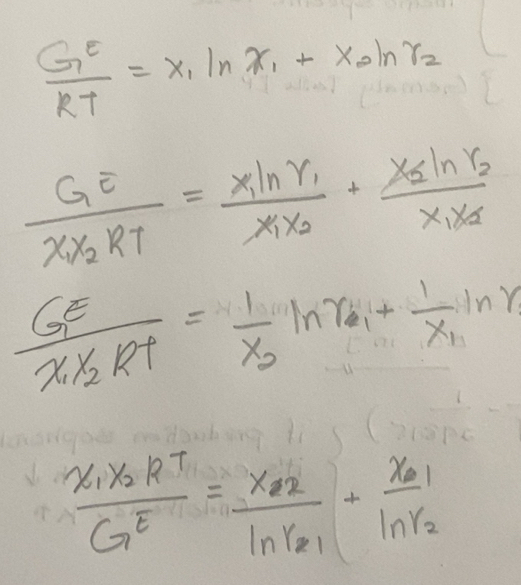 G^E/RT = x₁ ln γ₁ + x₂ ln γ₂
G^E/(x₁x₂RT) = x₁ ln γ₁/(x₁x₂) + x₂ ln γ₂/(x₁x₂)
G^E/(x₁x₂RT) = 1/x₂ ln γ₁ + 1/x₁ ln γ
x₁x₂RT/G^E = x₂/ln γ₁ + x₁/ln γ₂